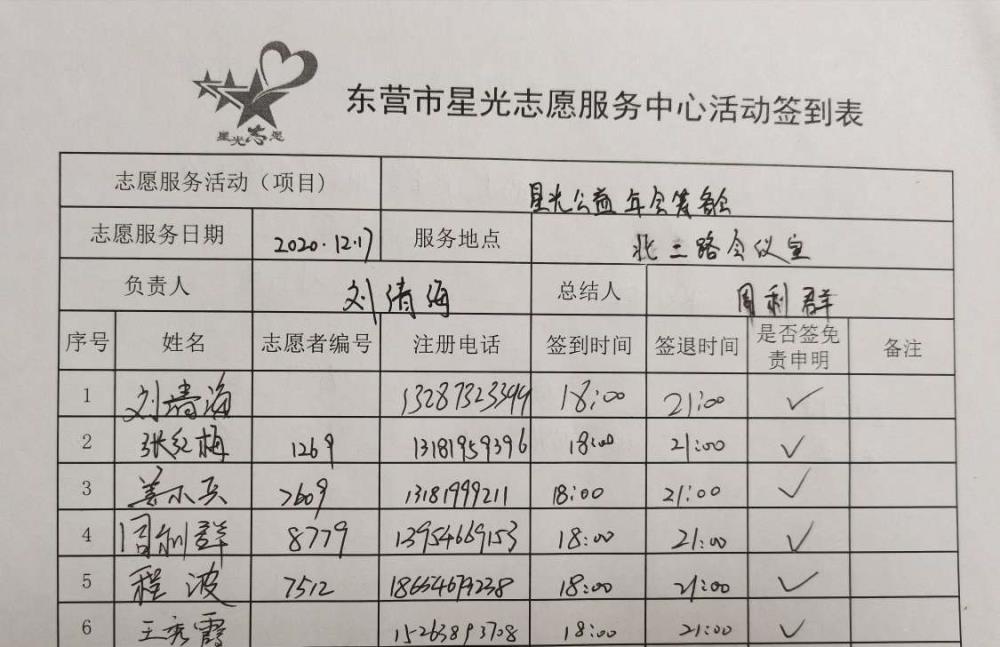 星光志愿
东营市星光志愿服务中心活动签到表
志愿服务活动（项目） 星光公益年会筹备会
志愿服务日期 2020.12.17 服务地点 北二路会议室
负责人 刘清海 总结人 周利群
序号 姓名 志愿者编号 注册电话 签到时间 签退时间 是否签免责申明 备注
1 刘清海 13287323399 18:00 21:00 ✓
2 张红梅 1269 13181959396 18:00 21:00 ✓
3 姜小兵 2609 13181999211 18:00 21:00 ✓
4 周利群 8779 13954669153 18:00 21:00 ✓
5 程波 7512 18654679238 18:00 21:00 ✓
6 王秀霞 15263893708 18:00 21:00 ✓